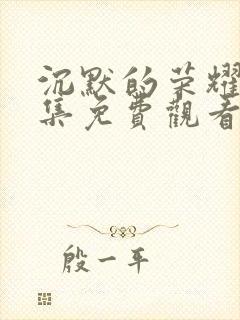 沉默的荣耀
集免費觀看
殷一平